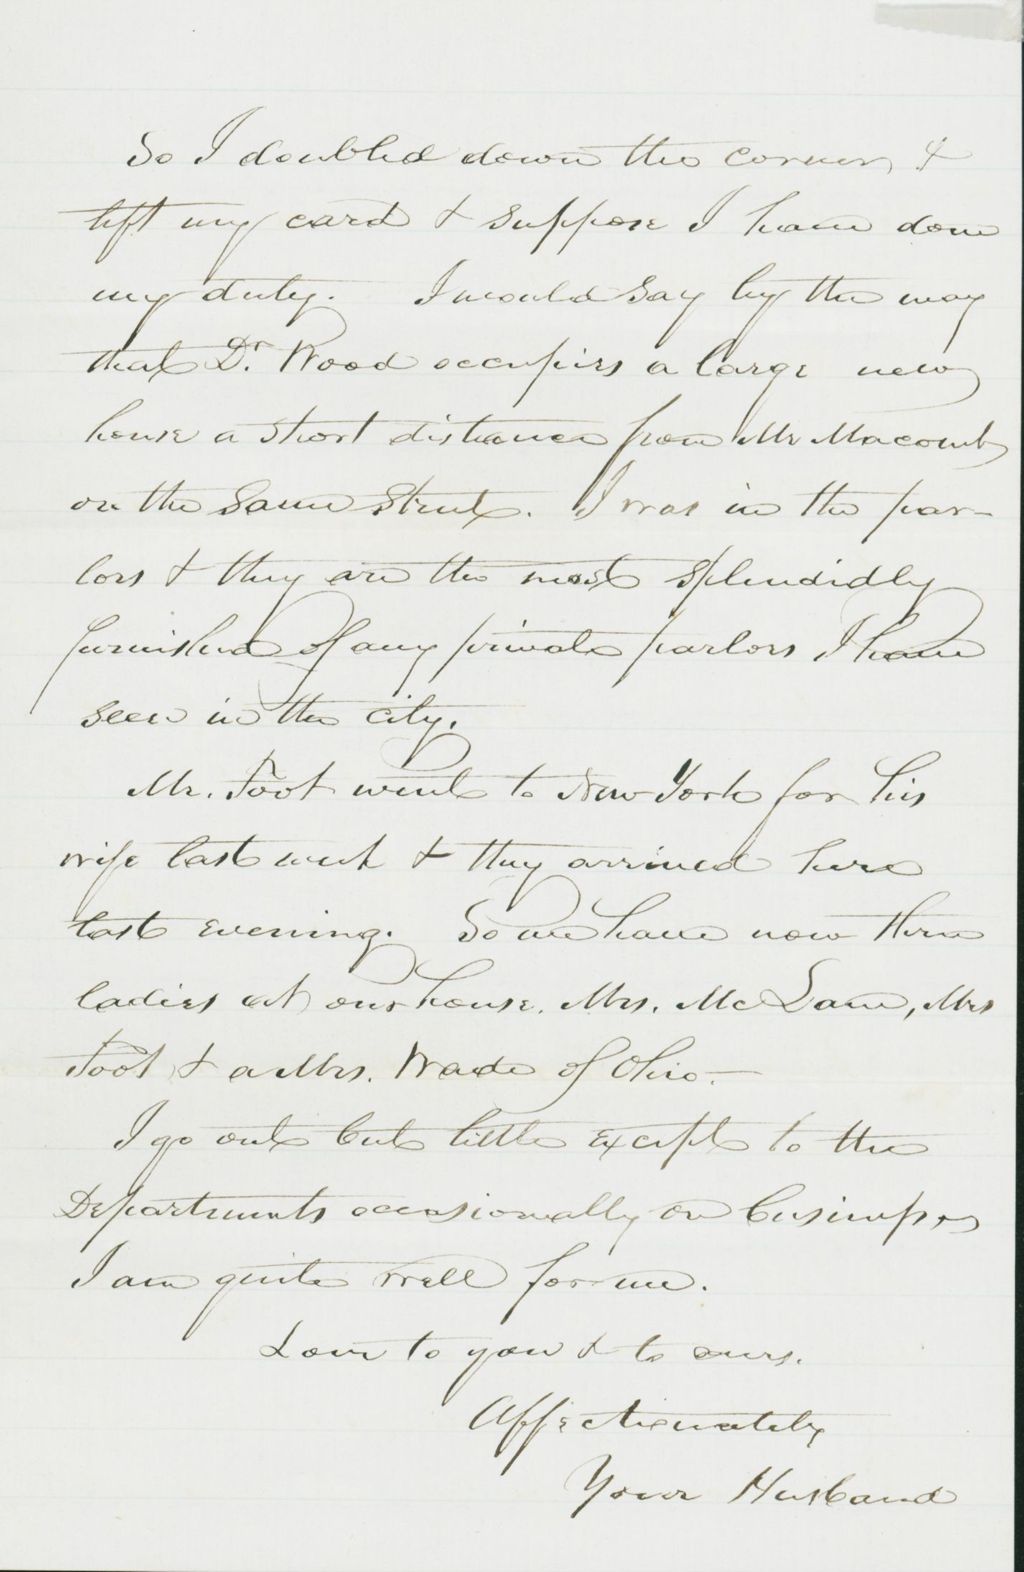 So I doubled down the corner, &
left my card & suppose I have done
my duty. I would say by the way
that Dr. Wood occupies a large new
house a short distance from Mr Macomb
on the same street. I was in the par-
lors & they are the most splendidly
furnished of any private parlors I have
seen in the city.
Mr. Foot went to New York for his
wife last week & they arrived here
last evening. So we have now three
ladies at our house. Mrs. McLane, Mrs
Foot & a Mrs. Wade of Ohio.—
I go out but little except to the
Departments occasionally on business
I am quite well for me.
Love to you & to ours.
Affectionately
Your Husband